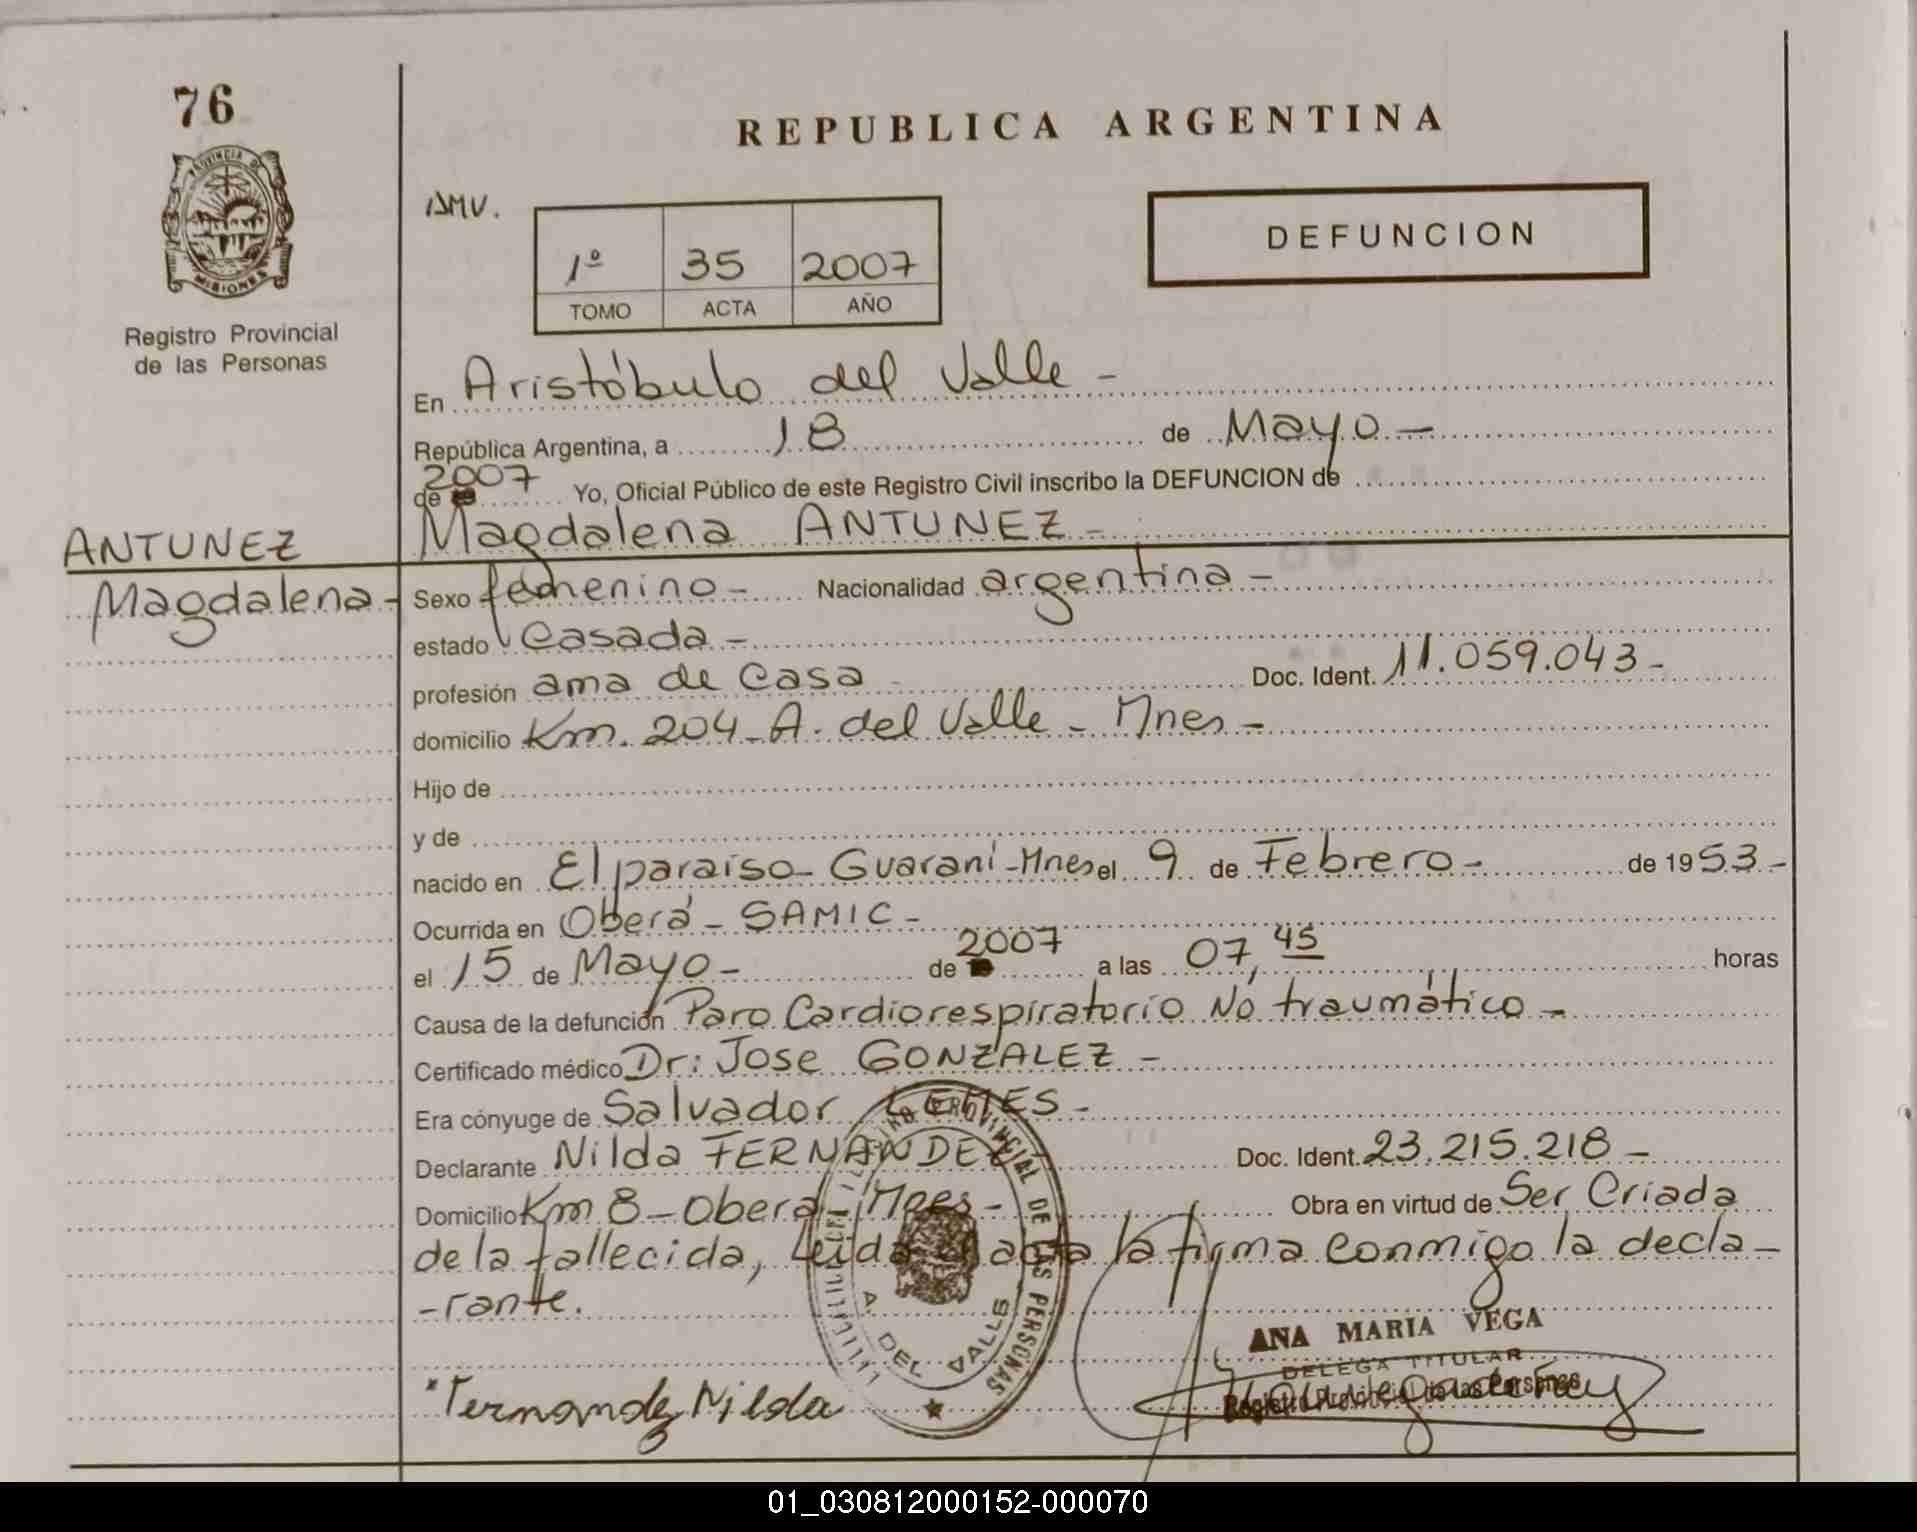 76
REPUBLICA ARGENTINA
PROVINCIA DE
MISIONES
Registro Provincial
de las Personas
AMV.
1º 35 2007
TOMO ACTA AÑO
DEFUNCION
En Aristóbulo del Valle -
República Argentina, a 18 de Mayo -
de 2007 Yo, Oficial Público de este Registro Civil inscribo la DEFUNCION de
ANTUNEZ
Magdalena -
Magdalena ANTUNEZ -
Sexo femenino - Nacionalidad argentina -
estado Casada -
profesión ama de Casa - Doc. Ident. 11.059.043 -
domicilio Km. 204 - A. del Valle - Mnes -
Hijo de
y de
nacido en El paraiso - Guaraní - Mnes el 9 de Febrero - de 1953 -
Ocurrida en Oberá - SAMIC -
el 15 de Mayo - de 2007 a las 07,45 horas
Causa de la defunción Paro Cardiorespiratorio No traumático -
Certificado médico Dr: Jose GONZALEZ -
Era cónyuge de Salvador LEMES -
Declarante Nilda FERNANDEZ - Doc. Ident. 23.215.218 -
Domicilio Km 8 - Obera - Mnes - Obra en virtud de Ser Criada
de la fallecida, Leida el acta la firma conmigo la decla-
-rante.
PROVINCIAL DE LAS PERSONAS
A. DEL VALLE
Fernandez Nilda
ANA MARIA VEGA
DELEGA TITULAR
Registro Provincial de las Personas
01_030812000152-000070